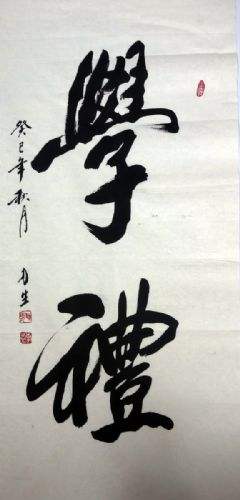 學禮
癸巳年秋月